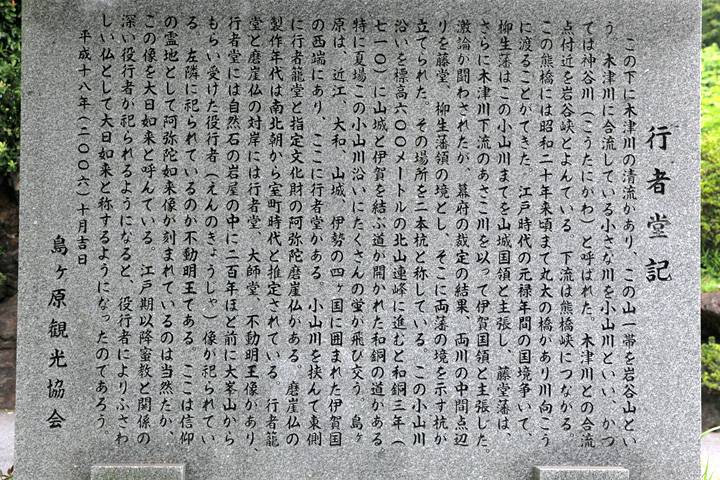 行者堂記
この下に木津川の清流があり、この山一帯を岩谷山とい
う 木津川に合流している小さな川を小山川といい、かつ
ては神谷川（こうたにかわ）と呼ばれた。木津川との合流
点付近を岩谷峡とよんでいる 下流は熊橋峡につながる。
この熊橋には昭和二十年来頃まで丸太の橋があり川向こう
に渡ることができた。江戸時代の元禄年間の国境争いで、
柳生藩はこの小山川までを山城国領と主張し、藤堂藩は、
さらに木津川下流のあさこ川を以って伊賀国領と主張した。
激論が闘わされたが、幕府の裁定の結果、両川の中間点辺
りを藤堂、柳生藩領の境とし、そこに両藩の境を示す杭が
立てられた。その場所を二本杭と称している。この小山川
沿いを標高六〇〇メートルの北山連峰に進むと和銅三年（
七一〇）に山城と伊賀を結ぶ道が開かれた和銅の道がある。
特に夏場この小山川沿いにたくさんの蛍が飛び交う。島ヶ
原は、近江、大和、山城、伊勢の四ヶ国に囲まれた伊賀国
の西端にあり、ここに行者堂がある。小山川を挟んで東側
に行者籠堂と指定文化財の阿弥陀磨崖仏がある。磨崖仏の
製作年代は南北朝から室町時代と推定されている 行者籠
堂と磨崖仏の対岸には行者堂、大師堂、不動明王像があり、
行者堂には自然石の岩屋の中に二百年ほど前に大峯山から
もらい受けた役行者（えんのきょうしゃ）像が祀られてい
る。左隣に祀られているのが不動明王である。ここは信仰
の霊地として阿弥陀如来像が刻まれているのは当然だか、
この像を大日如来と呼んでいる 江戸期以降密教と関係の
深い役行者が祀られるようになると、役行者によりふさわ
しい仏として大日如来と称するようになったのであろう
平成十八年（二〇〇六）十月吉日
島ヶ原観光協会